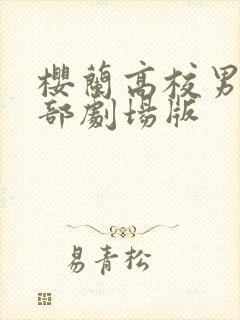 櫻蘭高校男
部劇場版
易青松